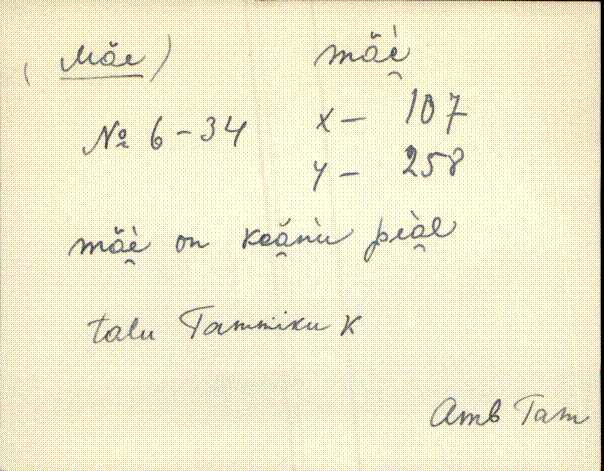 (Mäe) mäè̯
№ 6-34 x - 107
y - 258
mäè̯ on keä̯nù pià̯l
talu Tammiku K
Amb Tam